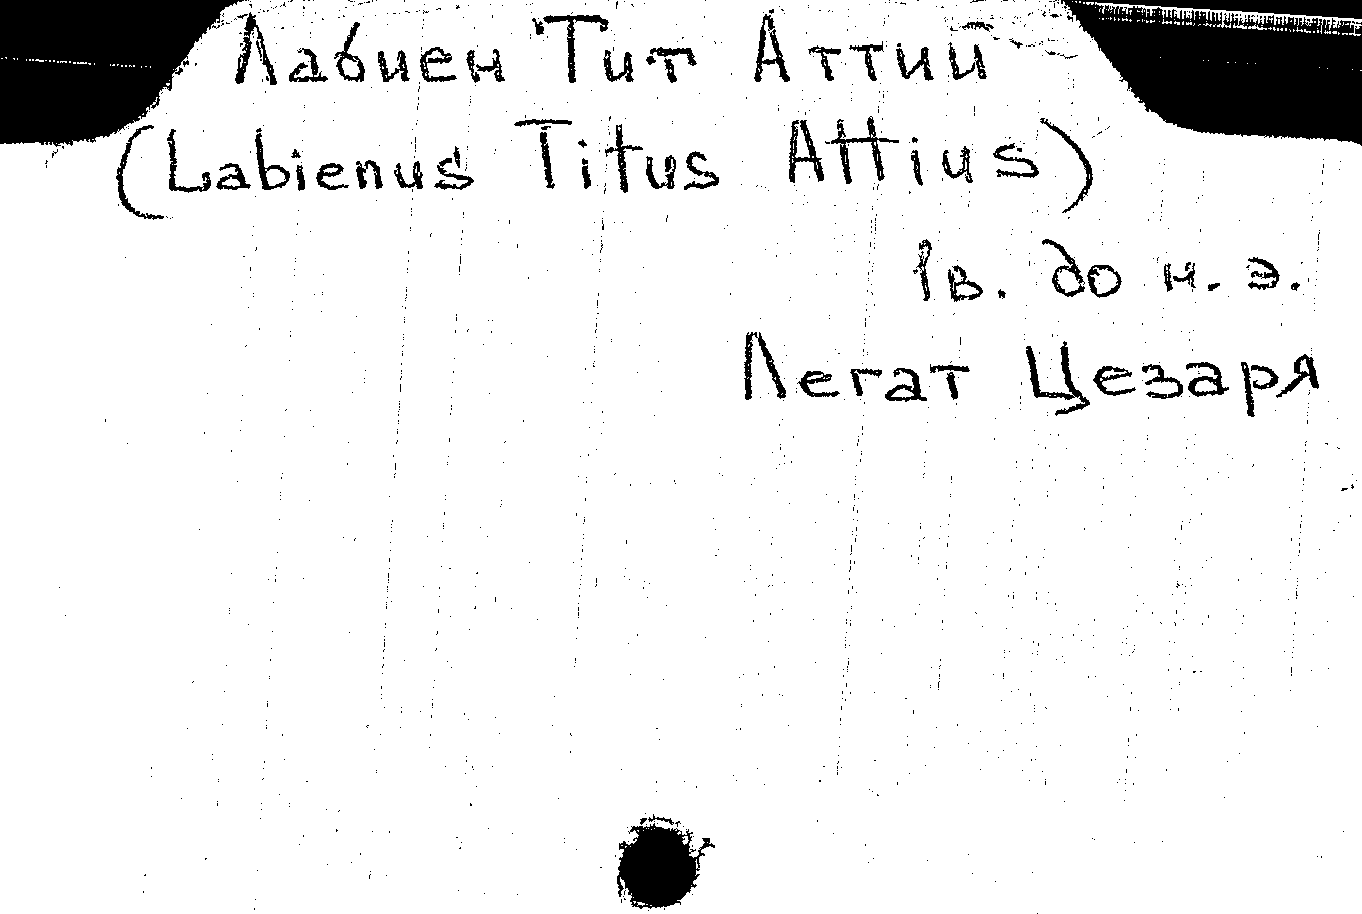 Лабиен Тит Аттий
(Labienus Titus Attius)
I в. до н. э.
Легат Цезаря